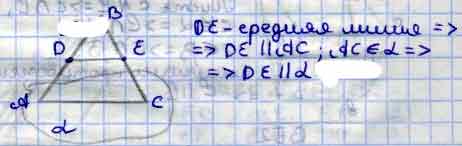 B
D E
A C
α
DE-средняя линия =>
=> DE || AC ; AC ∈ α =>
=> DE || α